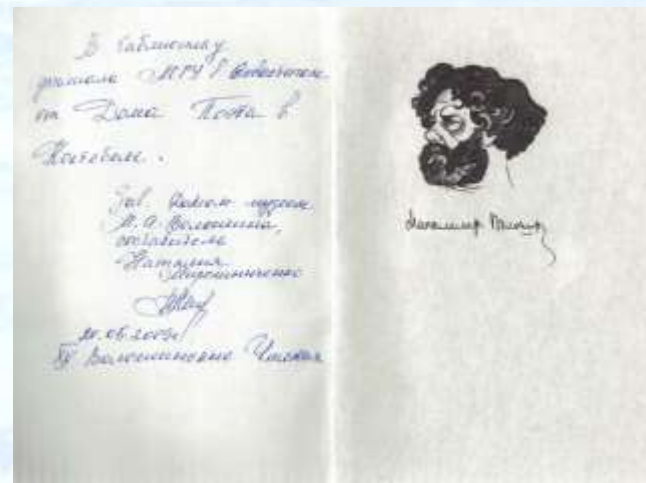 В библиотеку
филиала МГУ в Севастополе
от Дома Поэта в
Коктебеле.
Зав. Домом-музеем
М. А. Волошина,
составитель
Наталия
Мирошниченко
20.05.2009г
XV Волошинские Чтения
Максимилиан Волошин